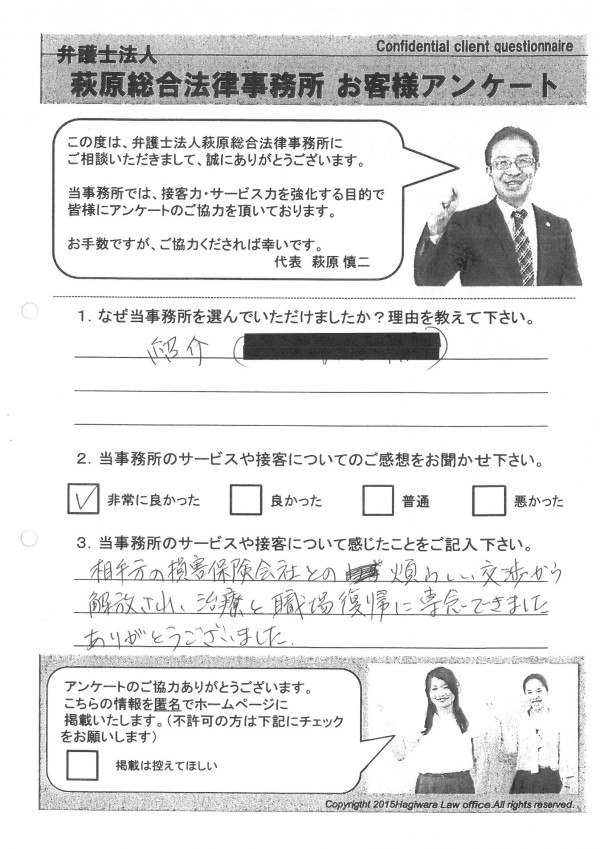 Confidential client questionnaire
弁護士法人
萩原総合法律事務所 お客様アンケート
この度は、弁護士法人萩原総合法律事務所に
ご相談いただきまして、誠にありがとうございます。
当事務所では、接客力・サービス力を強化する目的で
皆様にアンケートのご協力を頂いております。
お手数ですが、ご協力くだされば幸いです。
代表 萩原 慎二
1. なぜ当事務所を選んでいただけましたか？理由を教えて下さい。
紹介 ( )
2. 当事務所のサービスや接客についてのご感想をお聞かせ下さい。
非常に良かった 良かった 普通 悪かった
3. 当事務所のサービスや接客について感じたことをご記入下さい。
相手方の損害保険会社との 煩らしい交渉から
解放され、治療と職場復帰に専念できました
ありがとうございました.
アンケートのご協力ありがとうございます。
こちらの情報を匿名でホームページに
掲載いたします。(不許可の方は下記にチェック
をお願いします)
掲載は控えてほしい
Copyrigtht 2015Hagiwara Law office.All rights reserved.